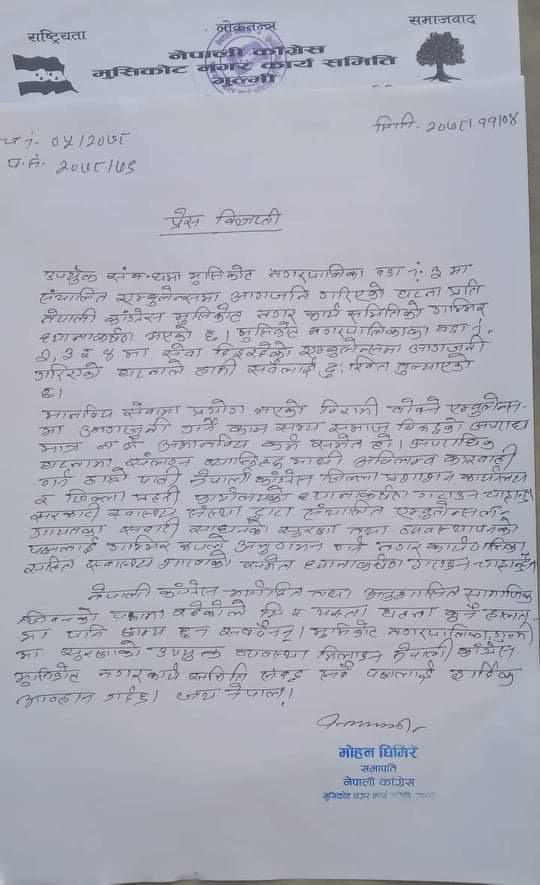 राष्ट्रियता
लोकतन्त्र
समाजवाद
नेपाली काँग्रेस
मुसिकोट नगर कार्य समिति
गुल्मी
च नं. ०५/२०७८
प.सं. २०७८/७९
मिति- २०७८/११/०४
प्रेस विज्ञप्ती
उपर्युक्त संबन्धमा मुसिकोट नगरपालिका वडा नं. ३ मा
संचालित एम्बुलेन्समा आगजनि गरिएको घटना प्रति
नेपाली काँग्रेस मुसिकोट नगर कार्य समितिको गम्भिर
ध्यानाकर्षण भएको छ। मुसिकोट नगरपालिकाका वडा नं.
२, ३ र ४ मा सेवा दिइरहेको एम्बुलेन्समा आगजनी
गरिएको घटनाले हामी सबैलाई दुःखित तुल्याएको
छ।
मानविय सेवामा प्रयोग भएको विरामी बोक्ने एम्बुलेन्स-
मा आगजनी गर्ने काम सभ्य समाज विरुद्धको अपराध
मात्र न भै अमानविय कर्म समेत हो। अपराधिक
घटनामा संलग्न व्यक्तिहरु माथी अविलम्ब कारवाही
गर्न हाम्रो पार्टी नेपाली काँग्रेस जिल्ला प्रशासन कार्यालय
र जिल्ला प्रहरी कार्यालयको ध्यानाकर्षण गराउन चाहान्छ।
सरकारी स्वास्थ्य संस्था द्वारा संचालित एम्बुलेन्स
लगायतका सवारी साधनको सुरक्षा तथा व्यवस्थापनको
पक्षलाई गम्भिर रूपले अनुगमन गर्न नगर कार्यपालिका
सहित स्वास्थ्य शाखाको समेत ध्यानाकर्षण गराउन चाहन्छौं
नेपाली काँग्रेस मर्यादित तथा अनुशासित सामाजिक
जिवनको पक्षमा रहेकोले यस्ता घटना कुनै हालत-
मा पनि क्षम्य हुन सक्दैनन्। मुसिकोट नगरपालिका
मा सुरक्षाको उपयुक्त व्यवस्था मिलाउन नेपाली काँग्रेस
मुसिकोट नगर कार्य समिति सबै पक्षलाई हार्दिक
आव्हान गर्दछ। जय नेपाल।
मोहन घिमिरे
सभापति
नेपाली काँग्रेस
मुसिकोट नगर कार्य समिति